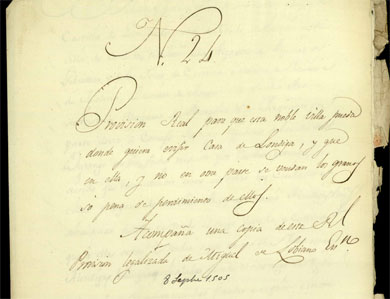 N. 24
Provision Real para que esta noble villa pueda
donde quiera erijir Casa de Lonjia, y que
en ella, y no en otra parte se vendan los granos
só pena de perdimiento de ellos.
Acompaña una copia de esta Rl
Provision legalizada de Miguel de Lobiano Essno
8 Sepbre 1505